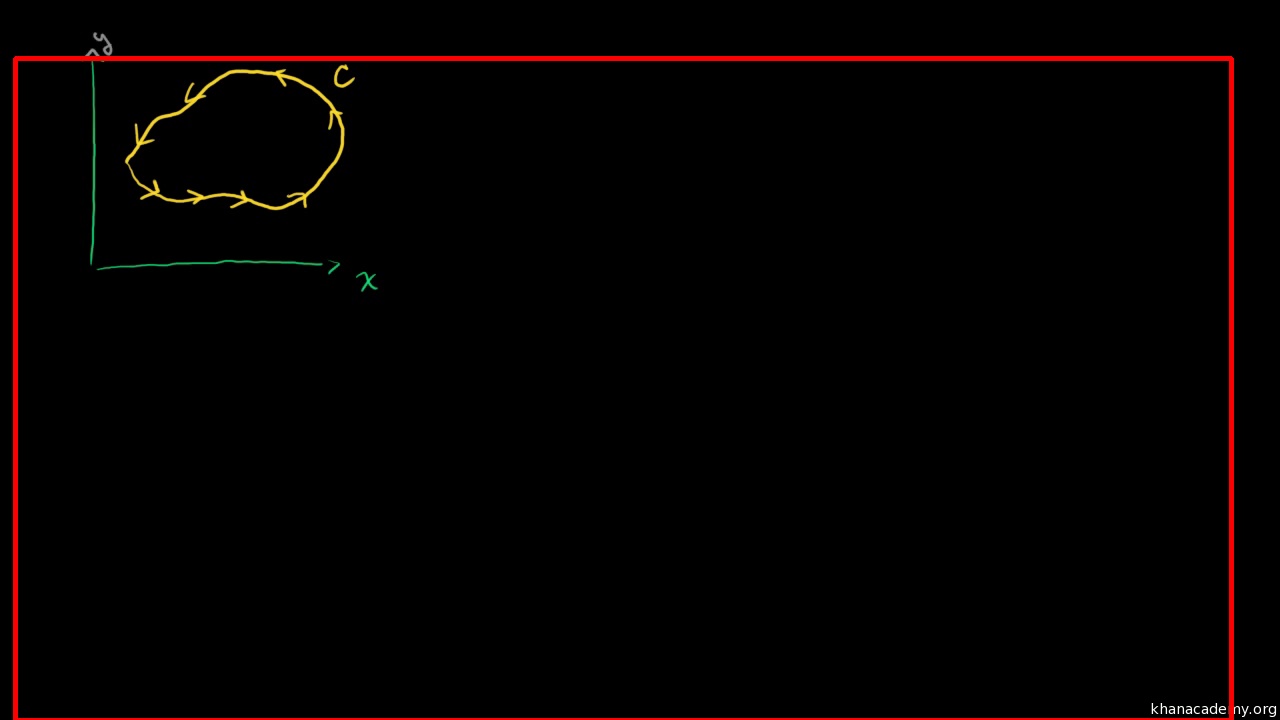 y
C
x
khanacademy.org